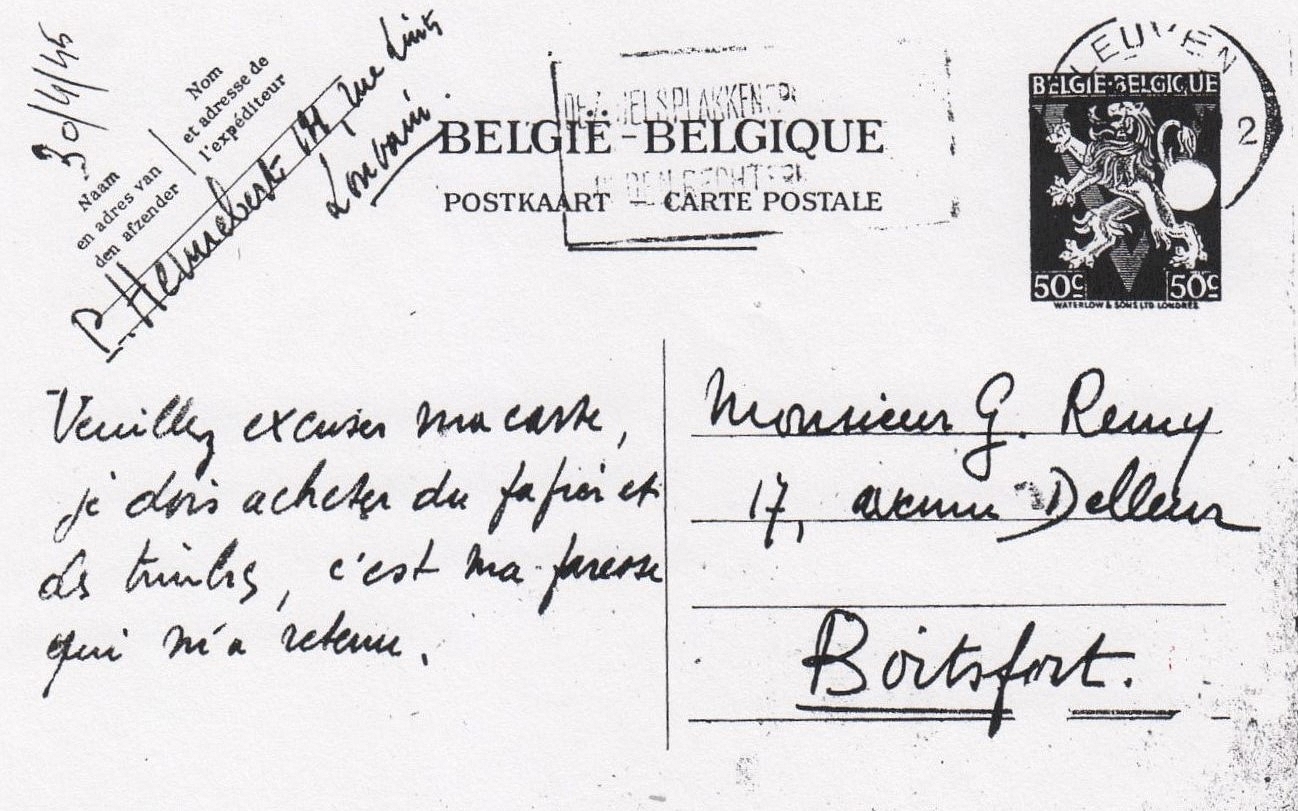 30/4/45
Nom
et adresse de
l'expéditeur
Naam
en adres van
den afzender
P. rue
Louvain.
BELGIË-BELGIQUE
POSTKAART – CARTE POSTALE
LEUVEN
2
BELGIE-BELGIQUE
50c 50c
WATERLOW & SONS LTD. LONDRES
Veuillez excuser ma carte,
je dois acheter du papier et
des timbres, c'est ma paresse
qui m'a retenu.
Monsieur G. Remy
17, avenue Delleur
Boitsfort.